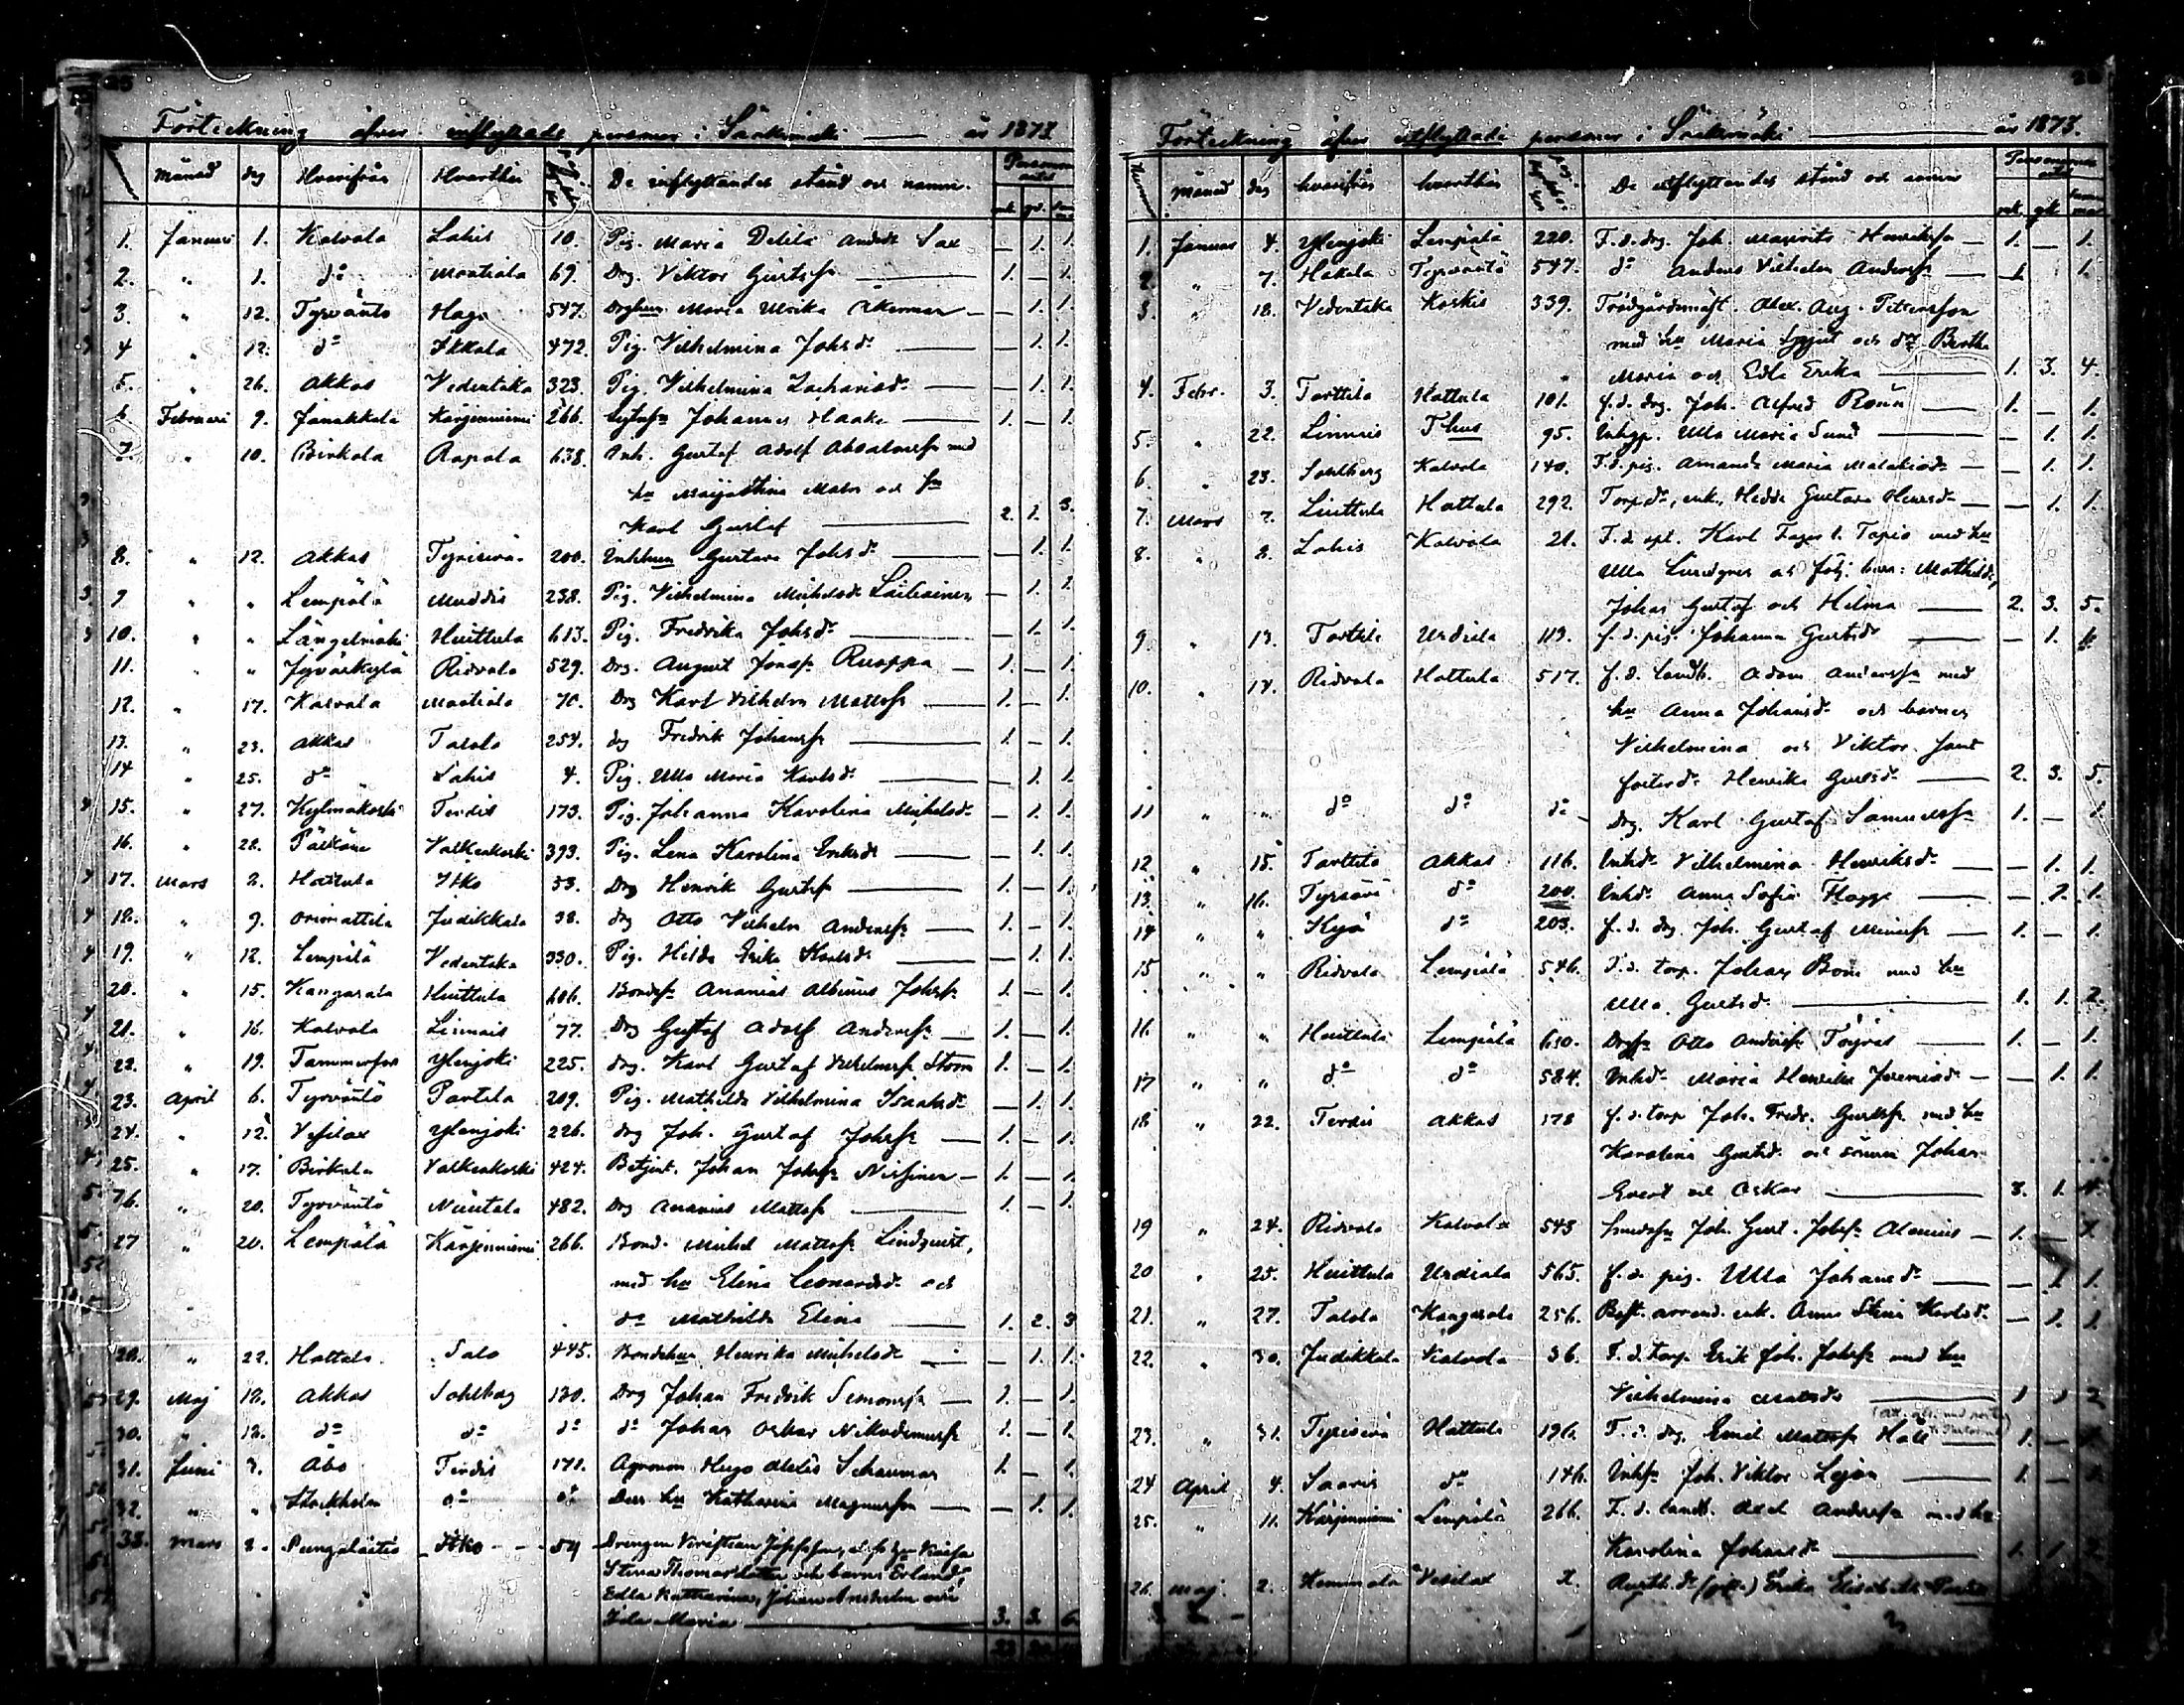 Förteckning öfver inflyttade personer i Sääksmäki år 1873
Månad dag Hvarifrån Hvarthän De inflyttandes stånd och namn. Personernas antal
mk. qv. summa
1. Januari 1. Kalvola Lahis 10. Pig. Maria Delila Andersd. Sax — 1. 1.
2. " 1. do Maatiala 69. Drg. Viktor Gustafs. 1. — 1.
3. " 12. Tyrväntö Haga 547. Drghu Maria Ulrika Åkerman — 1. 1.
4 " 12. do Ikkala 472. Pig. Vilhelmina Johsdr — 1. 1.
5. " 26. Akkas Vedentaka 323. Pig. Vilhelmina Zachariasdr — 1. 1.
6 Februari 9. Janakkala Karjenniemi 266. Johannes Haake 1. — 1.
7. " 10. Birkala Rapola 638. Inh. Gustaf Adolf Absalonss. med
hu Maija Stina Matsr och sn
Karl Gustaf 2. 1. 3.
8. " 12. Akkas Tyrisevä 200. Inhhun Gustava Johsdr — 1. 1.
9 " " Lempälä Muddis 238. Pig. Vilhelmina Michelsdr — 1. 1.
10. " " Längelmäki Huittula 613. Pig. Fredrika Johsdr — 1. 1.
11. " " Jyväskylä Ridvala 529. Drg. August Jonass. Ruoppa 1. — 1.
12. " 17. Kalvola Maatiala 70. Drg Karl Vilhelm Matss. 1. — 1.
13. " 23. Akkas Talola 254. drg Fredrik Johanss. 1. — 1.
14 " 25. do Lahis 4. Pig. Ulla Maria Karlsdr — 1. 1.
15. " 27. Kylmäkoski Terdis 173. Pig. Johanna Karolina Michelsdr — 1. 1.
16. " 28. Pälkäne Valkeakoski 393. Pig. Lena Karolina Eriksdr — 1. 1.
17. Mars 2. Hattula Itko 53. Drg Henrik Gustafs. 1. — 1.
18. " 9. Orimattila Judikkala 38. drg Otto Vilhelm Anderss. 1. — 1.
19. " 12. Lempälä Vedentaka 330. Pig. Hilda Erika Karlsdr — 1. 1.
20. " 15. Kangasala Huittula 606. Bondes. Ananias Albinus Johss. 1. — 1.
21. " 16. Kalvola Linnais 77. Drg Gustaf Adolf Anderss. 1. — 1.
22. " 19. Tammerfors Ylenjoki 225. drg. Karl Gustaf Vilhelmss. Ström 1. — 1.
23. April 6. Tyrväntö Partala 209. Pig. Mathilda Vilhelmina Isaksdr — 1. 1.
24. " 12. Vesilax Ylenjoki 226. drg Joh. Gustaf Johss. 1. — 1.
25. " 17. Birkala Valkeakoski 424. Betjent. Johan Johss. Nissinen 1. — 1.
26. " 20. Tyrväntö Niintala 482. Drg Ananias Matss. 1. — 1.
27 " 20. Lempälä Karjenniemi 266. Bond. Michel Matss. Lindquist,
med hu Elina Leonardsd. och
dr Mathilda Elina 1. 2. 3
28. " 22. Hattula Salo 445. Bondehu Henrika Michelsdr — 1. 1.
29. Maj 12. Akkas Sohlberg 130. Drg Johan Fredrik Simonss. 1. — 1.
30. " 12. do do do do Johan Oskar Nikodemuss. 1. — 1.
31. Juni 3. Åbo Terdis 171. Agronom Hugo Alexis Schauman 1. — 1.
32. " " Stockholm do do Dess hu Katharina Magnusson — 1. 1.
33. Mars 2. Pungalaitio Itko 54 Drengen Josefsson,
Stina Thomasdotter och barnen Erland,
Edla Katharina, Johan Anshelm och
Ida Maria 3. 3. 6

Förteckning öfver utflyttade personer i Sääksmäki år 1873.
Nummer Månad dag hvarifrån hvarthän De utflyttandes stånd och namn Personernas antal
mk. qk summa
1. Januari 4. Ylenjoki Lempälä 220. F. d. drg. Joh. Mauritz Henrikss. 1. — 1.
2. " 7. Hakala Tyrväntö 547. do Anders Vilhelm Anderss. 1. 1.
3. " 18. Vedentaka Koskis 339. Trädgårdsmäst. Alex. Aug. Pettersson
med hu Maria och dr Bertha
Maria och Edla Erika 1. 3. 4.
4. Febr. 3. Tarttila Hattula 101. f. d. drg. Joh. Alfred Rönn 1. — 1.
5. " 22. Linnais T hus 95. Inhyp. Ulla Maria Sund — 1. 1.
6. " 23. Sohlberg Kalvola 140. F. d. pig. Amanda Maria Malakiasdr — 1. 1.
7. Mars 7. Liuttula Hattula 292. Torpdr, enk. Hedda Gustava Henrsdr — 1. 1.
8. " 8. Lahis Kalvola 21. F. d. spl. Karl Fager l. Tapio med hu
Ulla Lindgren och följ. barn: Mathilda,
Johan Gustaf och Helma 2. 3. 5.
9 " 13. Tarttila Urdiala 113. f. d. pig. Johanna Gustsdr — 1. 1.
10. " 14. Ridvala Hattula 517. f. d. landb. Adam Anderss. med
hu Anna Johansdr och barnen
Vilhelmina och Viktor samt
fosterdr Henrika Gustsdr 2. 3. 5.
11 " " do do do Drg. Karl Gustaf Samuelss. 1. — 1.
12 " 15. Tarttila Akkas 116. Inhdr Vilhelmina Henriksdr — 1. 1.
13. " 16. Tyrisevä do 200. Inhdr Anna Sofia Flagge — 1. 1.
14 " " Kyä do 203. f. d. drg. Joh. Gustaf 1. — 1.
15 " " Ridvala Lempälä 546. F. d. torp. Johan Bom med hu
Ulla Gustsd. 1. 1. 2.
16. " " Huittula Lempälä 610. Drgss Otto Anderss. Töyräs 1. — 1.
17 " " do do 584. Inhdr Maria Henrika Jeremiasdr — 1. 1.
18 " 22. Terdis Akkas 178 f. d. torp Joh. Fredr. Gustss. med hu
Karolina Gustsd. och sönerna Johan
Evert och Oskar 3. 1. 4.
19 " 24. Ridvala Kalvola 543 Smedss. Joh. Gust. Johss. Alenius 1. — 1.
20 " 25. Huittula Urdiala 565. f. d. pig. Ulla Johansdr — 1. 1.
21. " 27. Talola Kangasala 256. arrend. enk. Anna Stina Karlsd. — 1. 1.
22. " 30. Judikkala Kalvola 36. F. d. torp. Erik Joh. Johss. med hu
Vilhelmina Matsdr 1 1 2
23. " 31. Tyrisevä Hattula 196. F. d. drg. Emil Matss. Häll 1. — 1.
24 April 4. Saaris do 146. Inhs. Joh. Viktor Lejon 1. — 1.
25. " 11. Karjenniemi Lempälä 266. F. d. landb. Axel Anderss. med hu
Karolina Johansdr 1. 1. 2.
26. Maj 2. Kemmola Vesilax 2. Erika Elisabeth